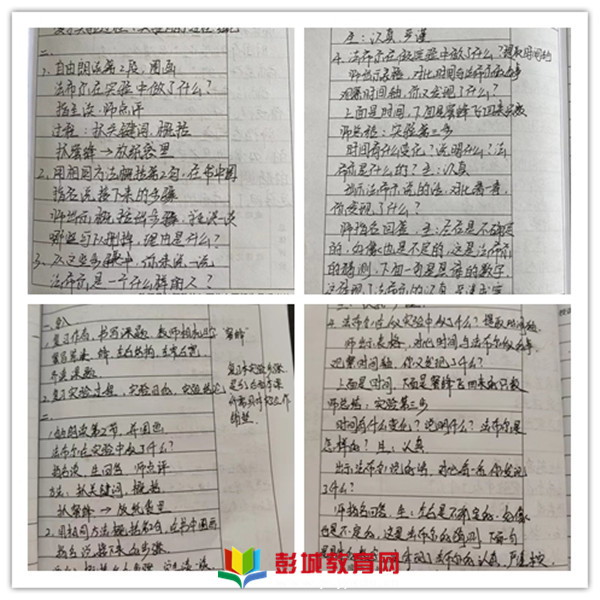 二、
2. 自由朗读第2段,圈画
法布尔在实验中做了什么?
指生读.师点评
过程:抓关键词,概括
抓蜜蜂→放纸袋里
2. 用相同方法概括第2句,在书中圈
指名说接下来的步骤
哪些可以删掉,理由是什么?
3、从这些步骤中,你来说一说
法布尔是一个什么样的人?
生:认真、严谨
4. 法布尔在做实验中做了什么?提取时间的
师出示表格,对比时间与法布尔做的事
观察时间轴,你又发现了什么?
上面是时间,下面是蜜蜂飞回来只数
师总结:实验第三步
时间有什么变化?说明什么?法
布尔是什么?生:认真
出示法布尔说的话,对比读一读,
你发现了什么?
师指名回答,生:左右是不确定
的,好像也是不定的,这是法布尔
的猜测,下面一句是准的数字,
一、导入
1. 复习作者,书写课题,教师相机指导
"蜜蜂"
写字方法.蜂,左右结构,左窄右宽
齐读课题
2. 复习实验过程,实验目的,实验结论
二、
1. 自由朗读第2节,并圈画
法布尔在实验中做了什么?
指名读,生回答,师点评
方法:抓关键词,概括
抓蜜蜂→放纸袋里
2. 用相同方法概括第2句,在书中圈画
指名说接下来的步骤
4. 法布尔在做实验中做了什么?提取时间轴
师出示表格,对比时间与法布尔做的事
观察时间轴,你又发现了什么?
上面是时间,下面是蜜蜂飞回来的只数
师总结:实验第三步
时间有什么变化?说明什么?法布尔是
怎样的?生:认真
出示法布尔说的话,对比看一看你发现
了什么?
师指名回答,生:左右是不确定的,好像
也是不定的,这是法布尔的猜测,下面一句
彭城教育网